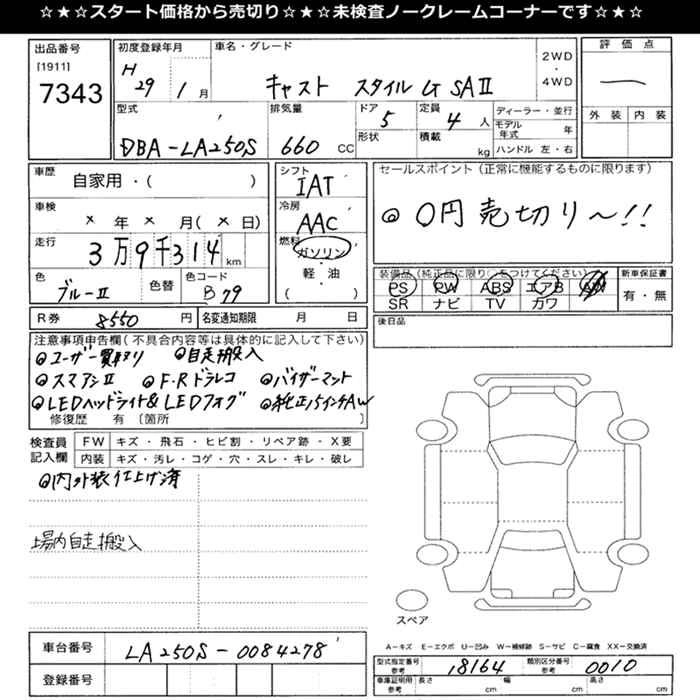 ☆★☆★スタート価格から売切り☆★☆★未検査ノークレームコーナーです☆★☆★
出品番号
[1911]
7343
初度登録年月
H
29 1月
車名・グレード
キャスト スタイル G SAⅡ
2WD
・
4WD
評価点
外装 内装
型式
DBA-LA250S
排気量
660 CC
ドア
5
形状
定員
4 人
積載
kg
ディーラー・並行
モデル年式 年
ハンドル 左・右
車歴
自家用・( )
車検
× 年 × 月( × 日)
走行
3万9千314km
色
ブルーⅡ
色替
色コード
B79
シフト
IAT
冷房
AAC
燃料
ガソリン
・
軽・油
( )
セールスポイント(正常に機能するものに限ります)
◎ 0円売切り〜!!
装備品(純正品に限り○をつけてください)
PS PW ABS エアB AW
SR ナビ TV カワ
新車保証書
有・無
R券 8550 円
名変通知期限 月 日
後日品
注意事項申告欄(不具合内容等は具体的に記入して下さい)
◎ユーザー買取り ◎自走搬入
◎スマアシⅡ ◎F・Rドラレコ ◎バイザーマット
◎LEDヘッドライト&LEDフォグ ◎純正15インチAW
修復歴 有 〔箇所 〕
検査員記入欄
FW キズ・飛石・ヒビ割・リペア跡・X要
内装 キズ・汚レ・コゲ・穴・スレ・キレ・破レ
◎内外装仕上げ済
場内自走搬入
スペア
A-キズ E-エクボ U-凹み W-補修跡 S-サビ C-腐食 XX-交換済
車台番号
LA250S-0084278
登録番号
型式指定番号
参考
18164
類別区分番号
参考
0010
車庫証明用
参考
長さ cm 幅 cm 高さ cm